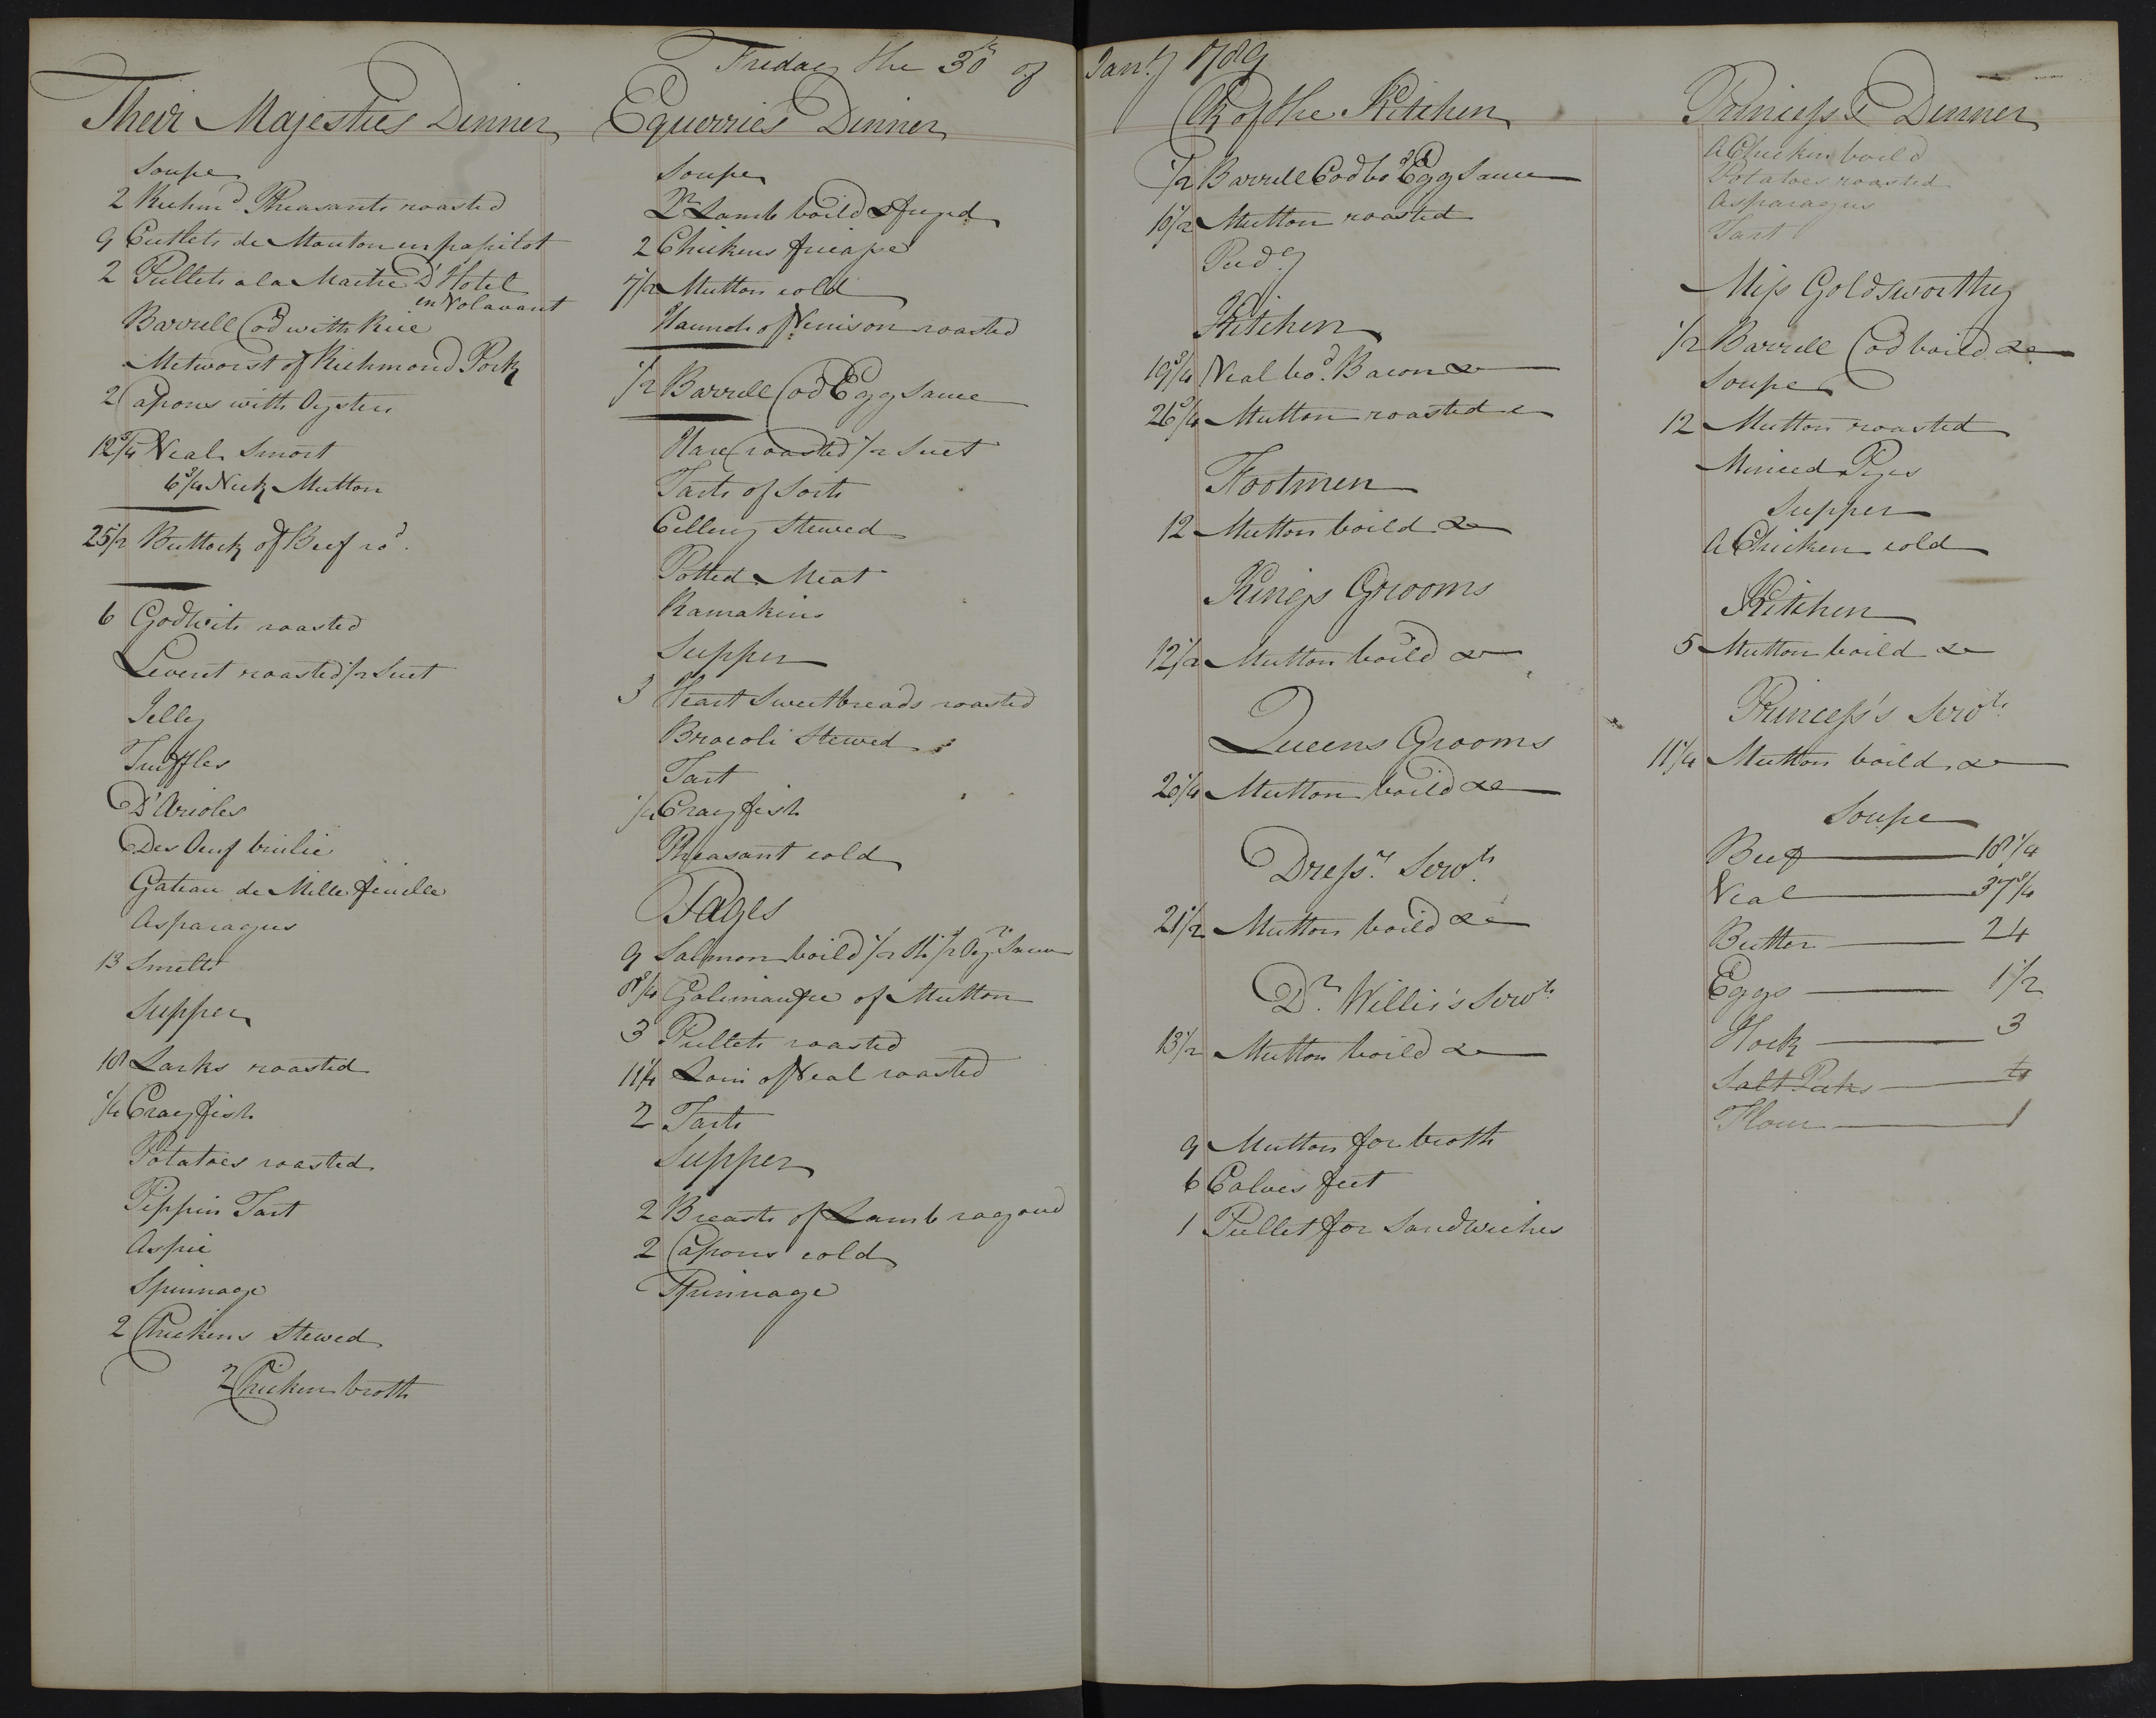 Friday the 30th of Janry 1789
Their Majesties Dinner
Soupe
2 Richmd Pheasants roasted
9 Cutlets de Mouton en papilot
2 Pullets a la Maitre D'Hotel
en Volavant
Barrell Cod with Rice
Metworst of Richmond Pork
2 Capons with Oysters
12 3/4 Veal Smort
6 3/4 Neck Mutton
25 1/2 Buttock of Beef rod.
6 Godwits roasted
Leveret roasted 1/2 Suet
Jelly
Truffles
D'Arioles
Des Oeuf brulie
Gateau de Mille feuille
Asparagus
13 Smelts
Supper
18 Larks roasted
1/4 Crayfish
Potatoes roasted
Pippin Tart
Aspic
Spinnage
2 Chickens Stewed
2 Chicken broth
Equerries Dinner
Soupe
Qr Lamb boild & fryed
2 Chickens fricasse
7 1/2 Mutton cold
Haunch of Venison roasted
1/2 Barrell Cod Egg Sauce
Hare roasted 1/2 Suet
Tarts of Sorts
Cellery Stewed
Potted Meat
Ramakins
Supper
3 Heart Sweetbreads roasted
Brocoli Stewed
Tart
1/4 Crayfish
Pheasant cold
Pages
9 Salmon boild 1/2 Sh. 1/2 Oyr Sauce
8 3/4 Galimaufre of Mutton
3 Pullets roasted
11 1/4 Loin of Veal roasted
2 Tarts
Supper
2 Breasts of Lamb ragoud
2 Capons cold
Spinnage
Clk of the Kitchen
1/2 Barrell Cod bod Egg Sauce
10 1/2 Mutton roasted
Pudg
Kitchen
19 3/4 Veal bod. Bacon &c
26 3/4 Mutton roasted
Footmen
12 Mutton boild &c
Kings Grooms
12 1/2 Mutton boild &c
Queens Grooms
20 1/4 Mutton boild &c
Dressrs Servts
21 1/2 Mutton boild &c
Dr. Willis's Servts
13 1/2 Mutton boild &c
9 Mutton for broth
6 Calves feet
1 Pullet for Sandwiches
Princess E Dinner
A Chicken boild
Potatoes roasted
Asparagus
Tart
Miss Goldsworthy
1/2 Barrell Cod boild &c
Soupe
12 Mutton roasted
Minced Pyes
Supper
A Chicken cold
Kitchen
5 Mutton boild &c
Princess's Servts
11 1/4 Mutton boild &c
Soupe
Beef 18 1/4
Veal 37 3/4
Butter 24
Eggs 1 1/2
Hock 3
Salt Pecks
Flour 1